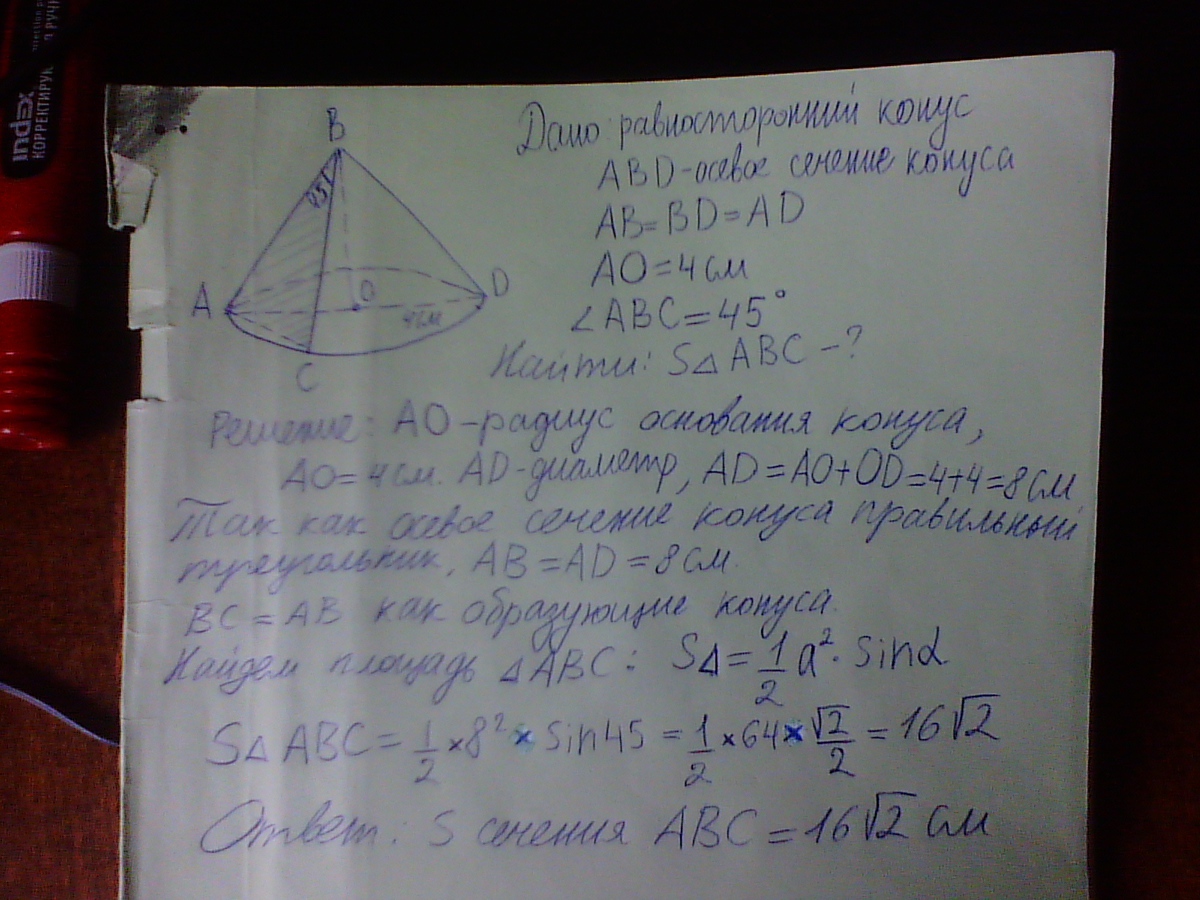 index
КОРРЕКТИРУЮ
B
45°
A
O
D
4см
C
Дано: равносторонний конус
ABD-осевое сечение конуса
AB=BD=AD
AO=4см
∠ABC=45°
Найти: S△ABC-?
Решение: AO-радиус основания конуса,
AO=4см. AD-диаметр, AD=AO+OD=4+4=8см
Так как осевое сечение конуса правильный
треугольник, AB=AD=8см.
BC=AB как образующие конуса.
Найдем площадь △ABC: S△=1/2 a²·sinα
S△ABC=1/2×8²×sin45=1/2×64×√2/2=16√2
Ответ: S сечения ABC=16√2 см